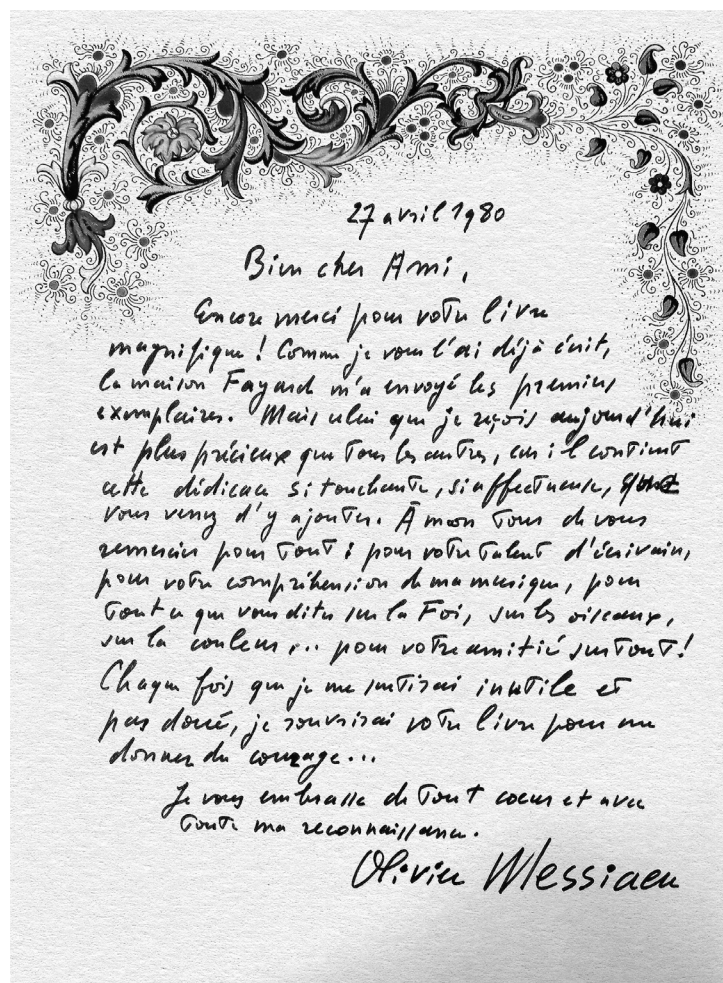 27 avril 1980
Bien cher Ami,
Encore merci pour votre livre
magnifique ! Comme je vous l'ai déjà écrit,
la maison Fayard m'a envoyé les premiers
exemplaires. Mais celui que je reçois aujourd'hui
est plus précieux que tous les autres, car il contient
cette dédicace si touchante, si affectueuse, que
vous venez d'y ajouter. À mon tour de vous
remercier pour tout : pour votre talent d'écrivain,
pour votre compréhension de ma musique, pour
tout ce que vous dites sur la Foi, sur les oiseaux,
sur la couleur,... pour votre amitié surtout !
Chaque fois que je me sentirai inutile et
pas doué, je rouvrirai votre livre pour me
donner du courage...
Je vous embrasse de tout coeur et avec
toute ma reconnaissance.
Olivier Messiaen